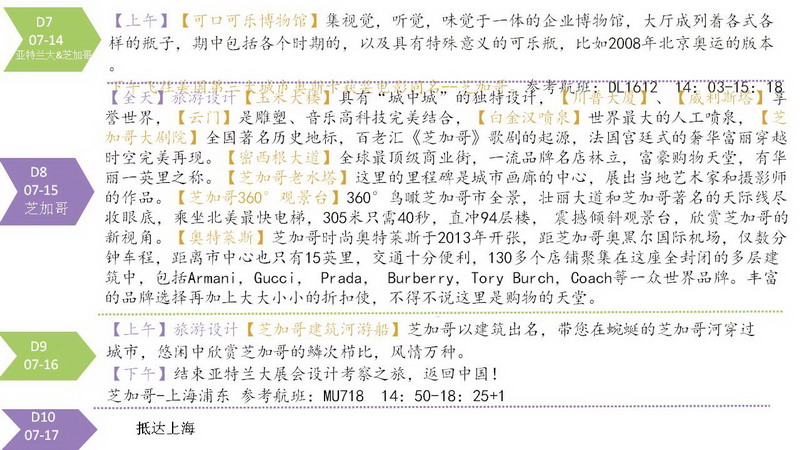 D7
07-14
亚特兰大&芝加哥
【上午】【可口可乐博物馆】集视觉，听觉，味觉于一体的企业博物馆，大厅成列着各式各
样的瓶子，期中包括各个时期的，以及具有特殊意义的可乐瓶，比如2008年北京奥运的版本
。
下午飞往美国第三大城市奥斯卡获奖电影同名--芝加哥。参考航班：DL1612 14：03-15：18
D8
07-15
芝加哥
【全天】旅游设计【玉米大楼】具有“城中城”的独特设计，【川普大厦】、【威利斯塔】享
誉世界，【云门】是雕塑、音乐高科技完美结合，【白金汉喷泉】世界最大的人工喷泉，【芝
加哥大剧院】全国著名历史地标，百老汇《芝加哥》歌剧的起源，法国宫廷式的奢华富丽穿越
时空完美再现。【密西根大道】全球最顶级商业街，一流品牌名店林立，富豪购物天堂，有华
丽一英里之称。【芝加哥老水塔】这里的里程碑是城市画廊的中心，展出当地艺术家和摄影师
的作品。【芝加哥360°观景台】360°鸟瞰芝加哥市全景，壮丽大道和芝加哥著名的天际线尽
收眼底，乘坐北美最快电梯，305米只需40秒，直冲94层楼， 震撼倾斜观景台，欣赏芝加哥的
新视角。【奥特莱斯】芝加哥时尚奥特莱斯于2013年开张，距芝加哥奥黑尔国际机场，仅数分
钟车程，距离市中心也只有15英里，交通十分便利，130多个店铺聚集在这座全封闭的多层建
筑中，包括Armani，Gucci， Prada， Burberry，Tory Burch，Coach等一众世界品牌。丰富
的品牌选择再加上大大小小的折扣使，不得不说这里是购物的天堂。
D9
07-16
【上午】旅游设计【芝加哥建筑河游船】芝加哥以建筑出名，带您在蜿蜒的芝加哥河穿过
城市，悠闲中欣赏芝加哥的鳞次栉比，风情万种。
【下午】结束亚特兰大展会设计考察之旅，返回中国！
芝加哥-上海浦东 参考航班：MU718 14：50-18：25+1
D10
07-17
抵达上海